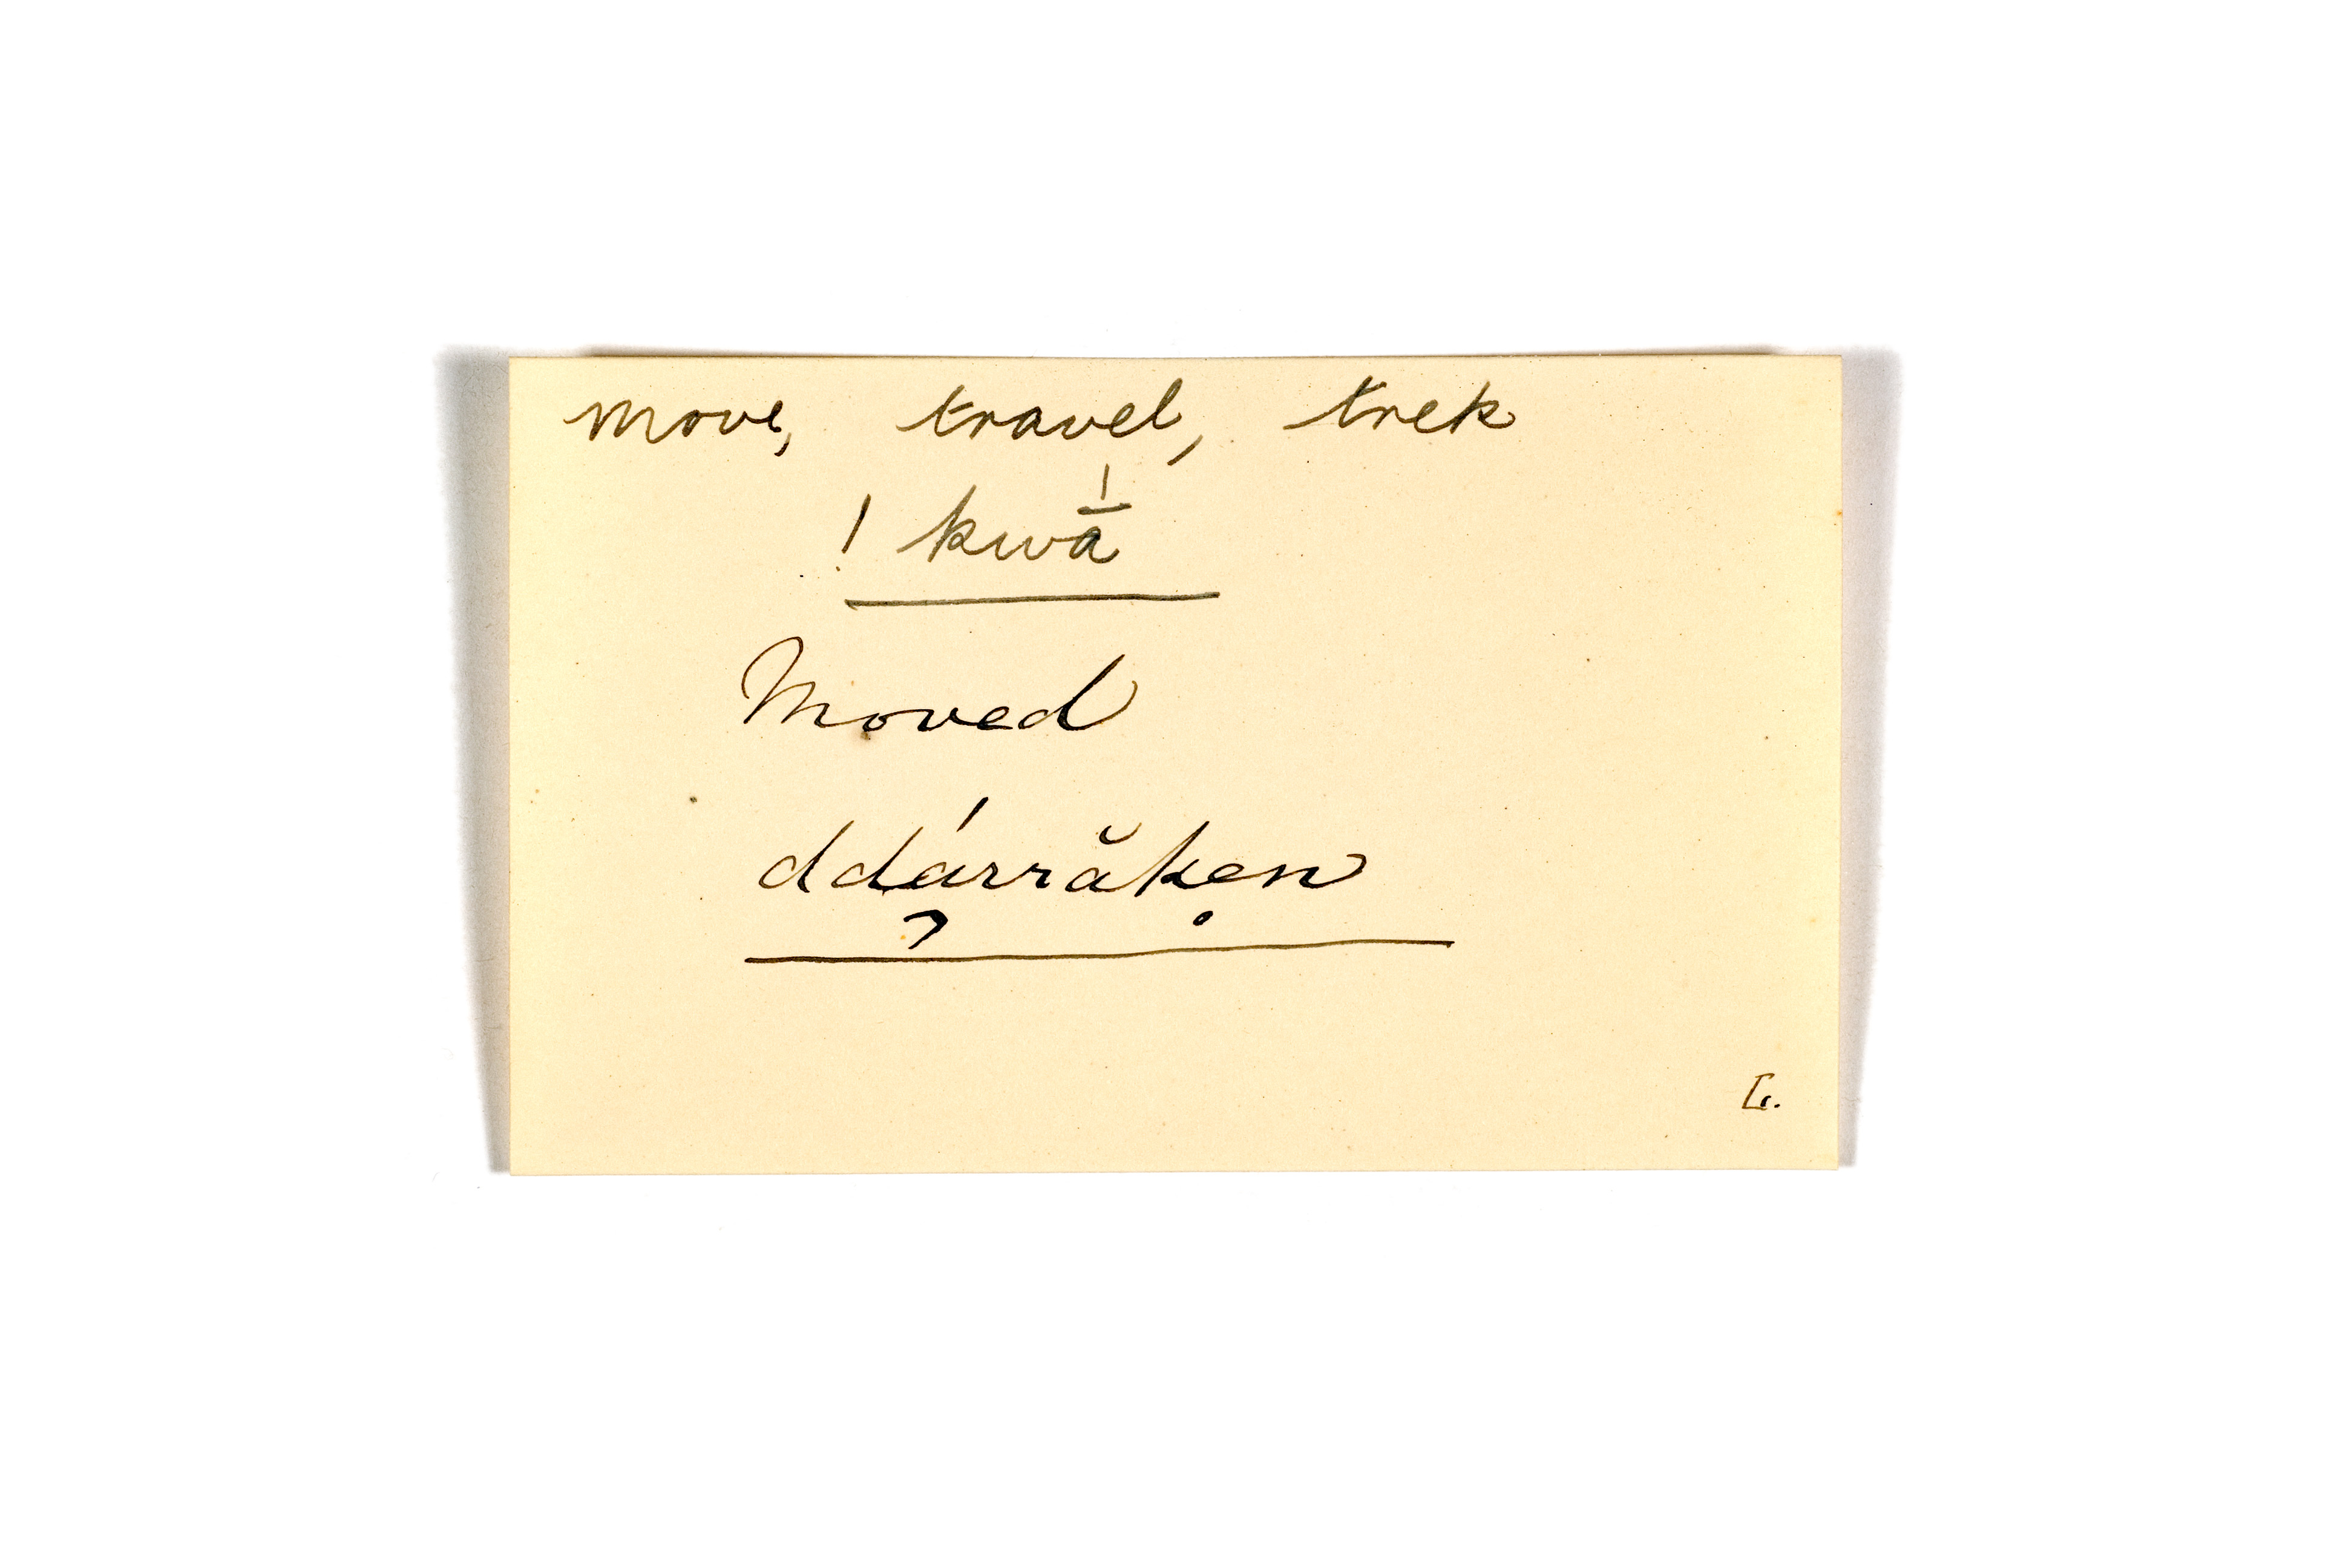 move, travel, trek
! kwā́
Moved
ddá̧rrăkẹn
L.